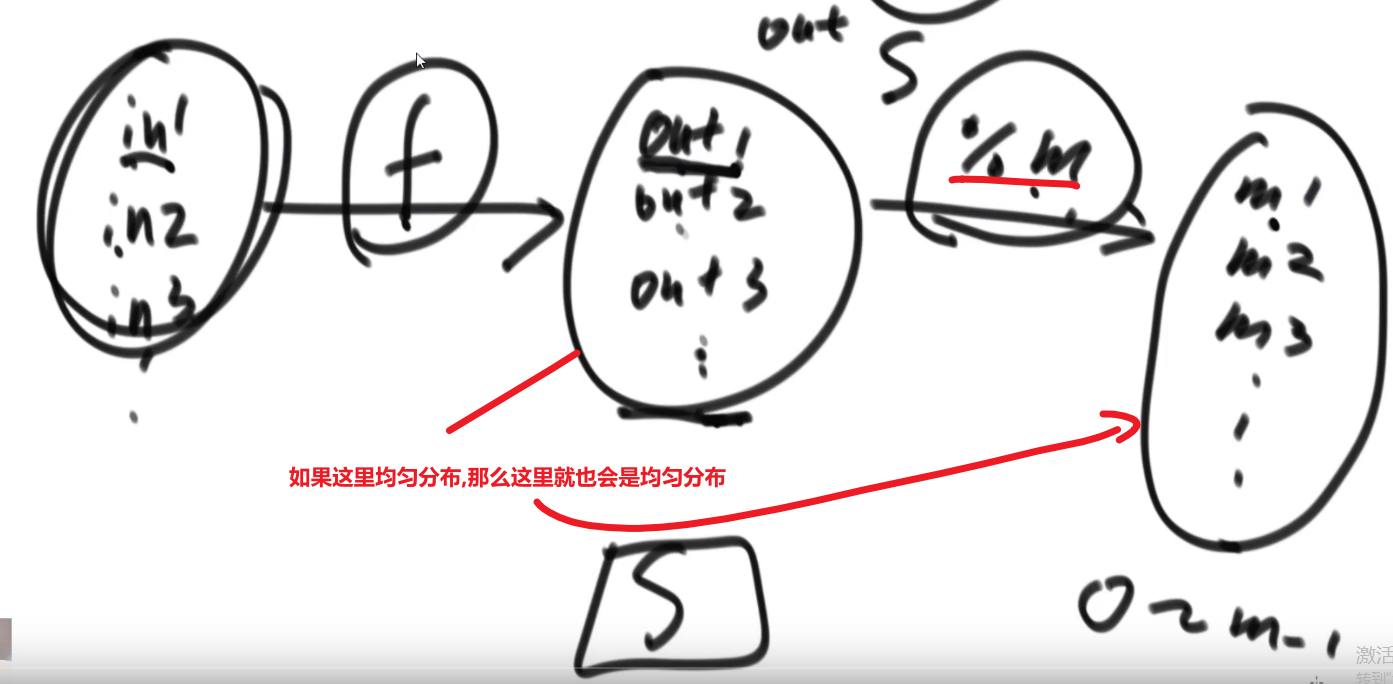 out
S
in1
in2
in3
f
out1
out2
out3
% m
m1
m2
m3
如果这里均匀分布,那么这里就也会是均匀分布
S
0~m-1
激活
转到"